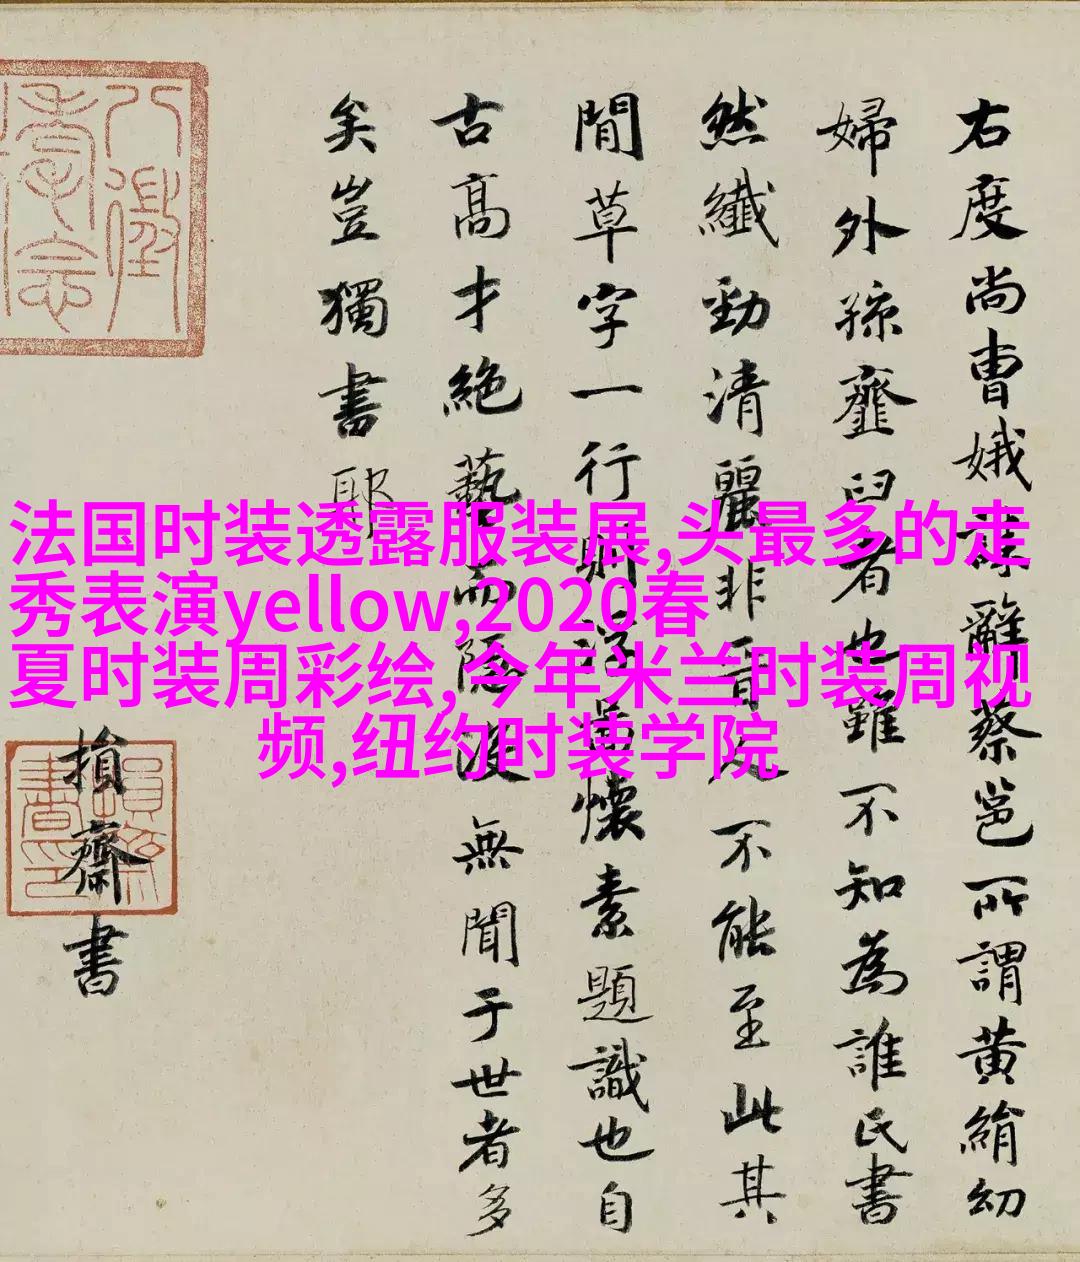 右度尚曹娥誄辭蔡邕所謂黄絹幼
婦外孫虀臼者也雖不知為誰氏書
然纖勁清麗非晉人不能至此其
間草字一行則浮屠懷素題識也自
古高才絶藝而隱没無聞于世者多
矣豈獨書耶
損齋書
損齋書印
法国时装透露服装展,头最多的走
秀表演yellow,2020春
夏时装周彩绘,今年米兰时装周视
频,纽约时装学院